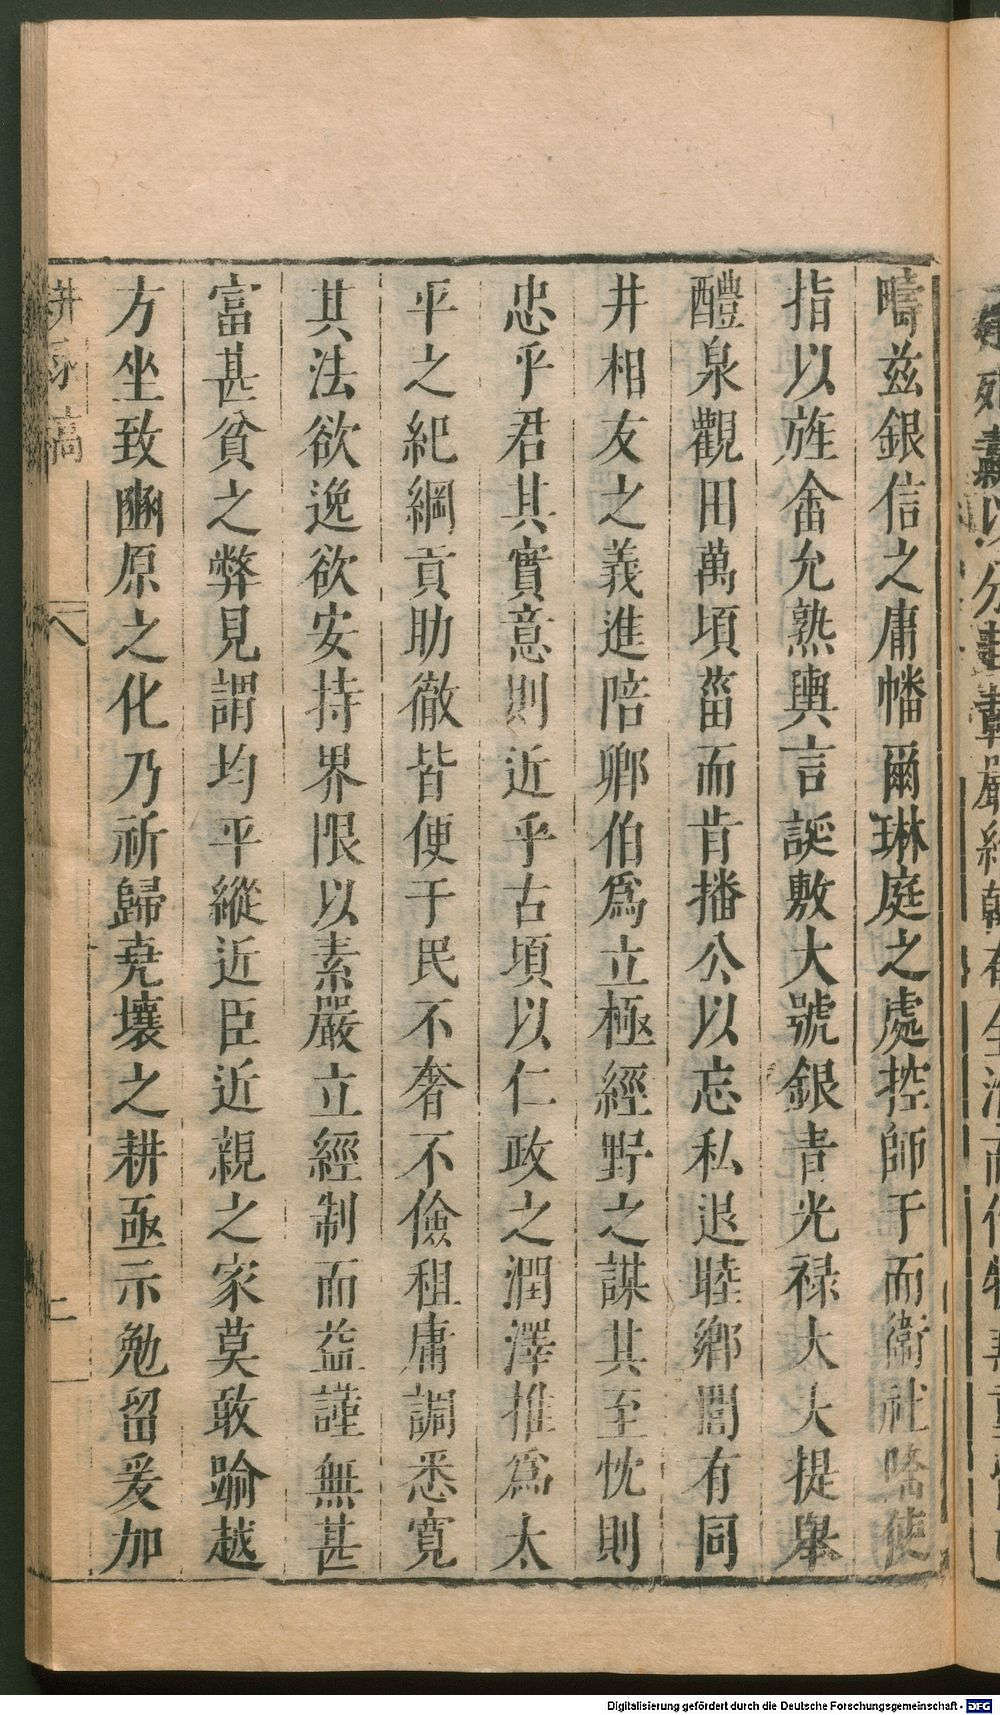 疇兹銀信之庸幡爾琳庭之處控師于而衛社□使
指以旌畬允熟輿言誕敷大號銀青光禄大夫提舉
醴泉觀田萬頃菑而肯播公以忘私退睦鄉閭有同
井相友之義進陪鄉伯爲立極經野之謀其至忱則
忠乎君其實意則近乎古頃以仁政之潤澤推爲太
平之紀綱貢助徹皆便于民不奢不儉租庸調悉寛
其法欲逸欲安持界限以素嚴立經制而益謹無甚
富甚貧之弊見謂均平縱近臣近親之家莫敢踰越
方坐致豳原之化乃祈歸堯壤之耕亟示勉留爰加
八
二
Digitalisierung gefördert durch die Deutsche Forschungsgemeinschaft - DFG